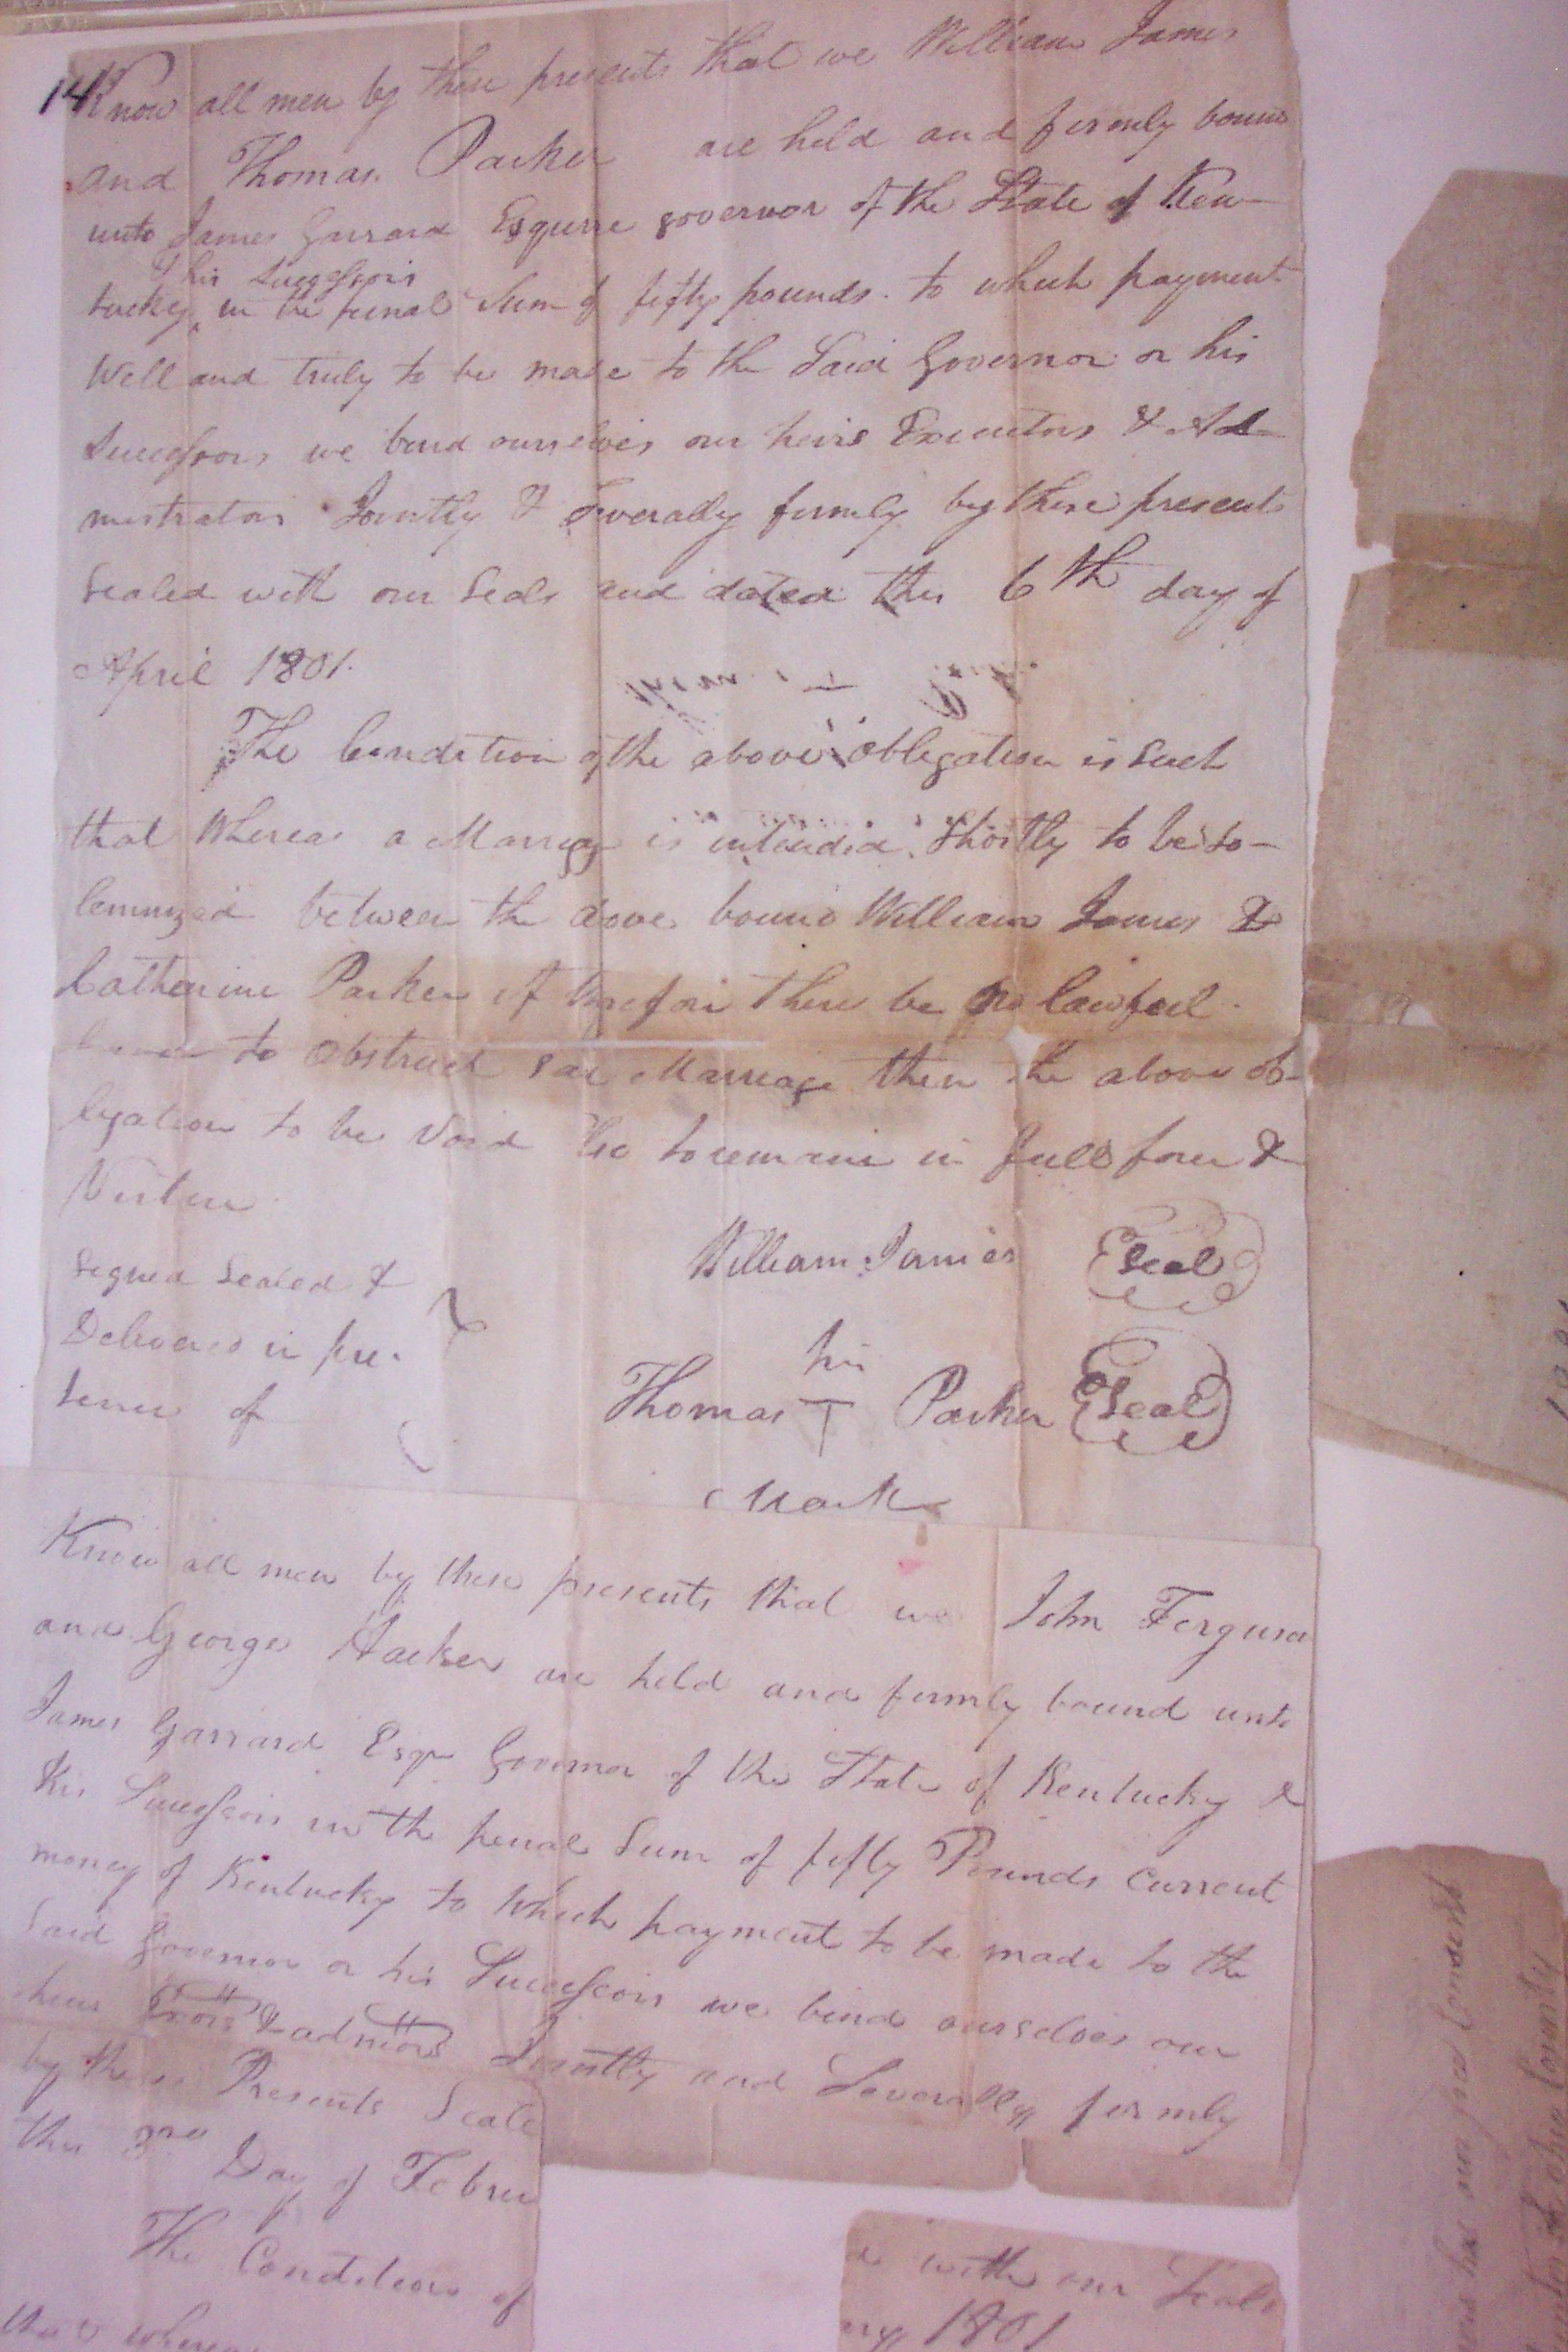 14 Know all men by these presents that we William James
and Thomas Parker are held and firmly bound
unto James Garrard Esquire governor of the State of Ken-
& his Successors
tucky, in the penal Sum of fifty pounds. to which payment
Well and truly to be made to the Said Governor or his
Successors we bind ourselves our heirs Executors & Ad-
ministrators Jointly & Severally firmly by these presents
Sealed with our Seals and dated this 6th day of
April 1801.
The Condition of the above obligation is Such
that Whereas a Marriage is intended Shortly to be So-
lemnized between the above bound William James &
Catherine Parker if therefore there be no lawful
to obstruct Said Marriage then the above ob-
ligation to be Void Else to remain in full force &
Virtue
Signed Sealed &
Delivered in pre-
sence of
William James Seal
his
Thomas T Parker Seal
Mark
Know all men by these presents that we John Ferguson
and George Hacker are held and firmly bound unto
James Garrard Esqr Governor of the State of Kentucky &
his Successors in the penal Sum of fifty Pounds Current
money of Kentucky to Which payment to be made to the
Said Governor or his Successors we bind ourselves our
heirs Exors & admors Jointly and Severally firmly
by these Presents Seale
this Day of Febru
The Condition of
that whereas
with our Seals
ary 1801
has our free Consent
County